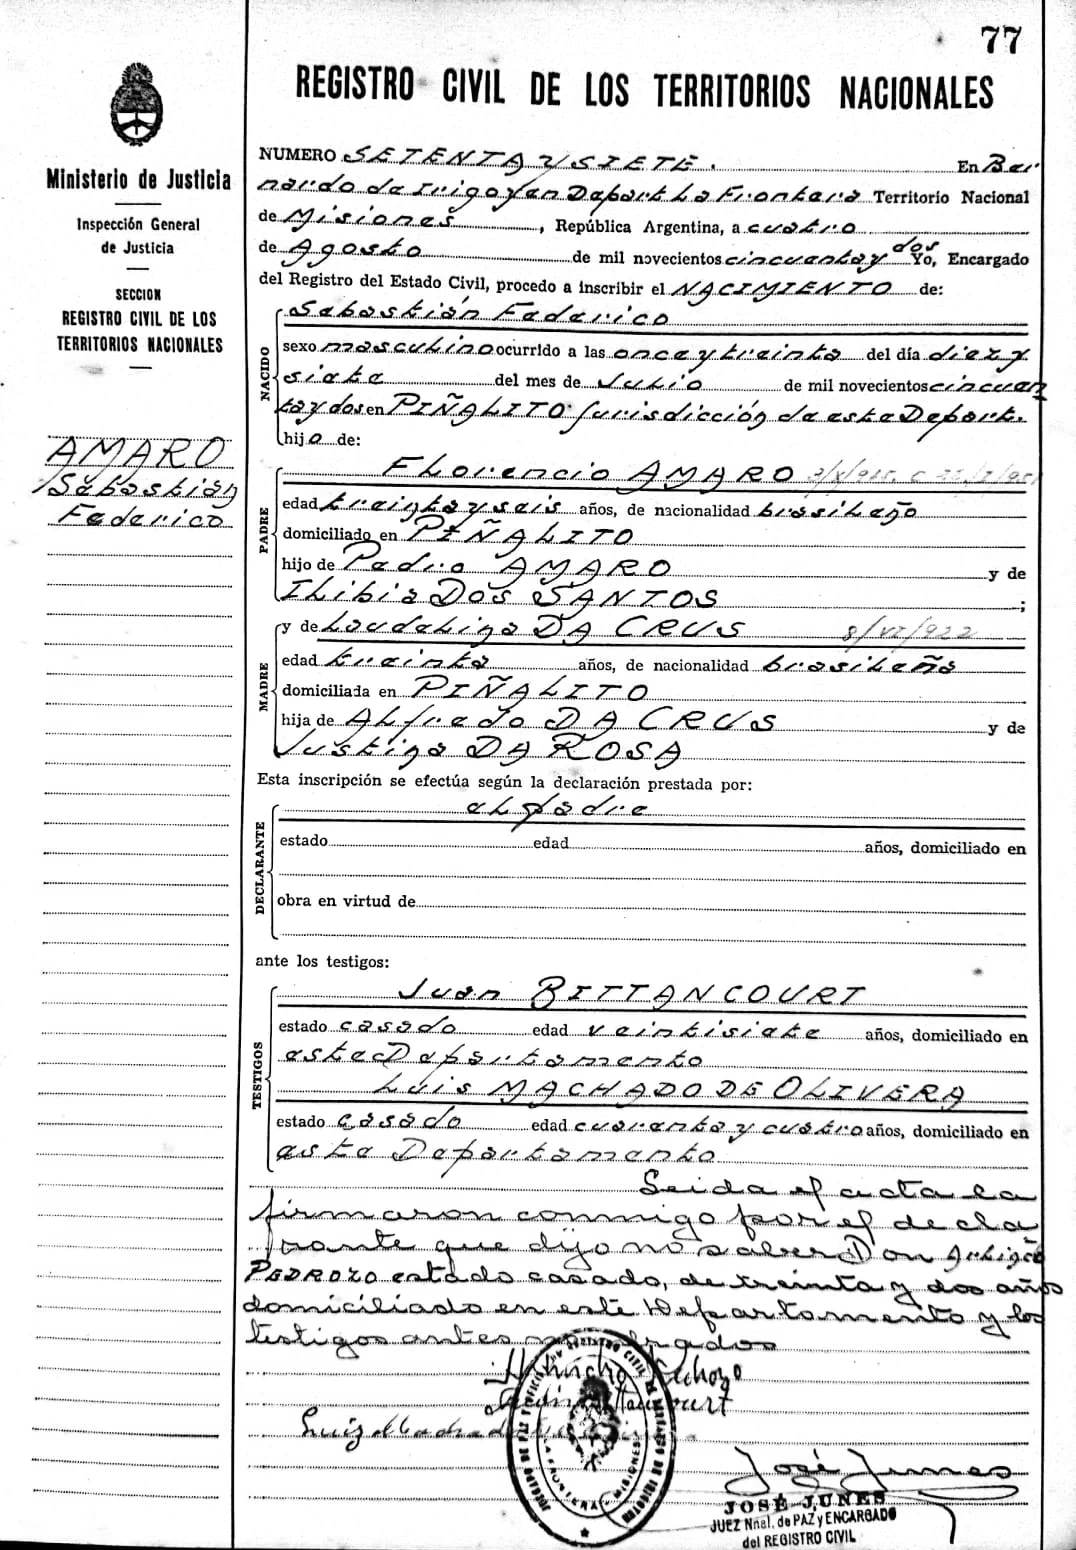 77
REGISTRO CIVIL DE LOS TERRITORIOS NACIONALES
Ministerio de Justicia
Inspección General
de Justicia
SECCION
REGISTRO CIVIL DE LOS
TERRITORIOS NACIONALES
AMARO
Sebastián
Federico
NUMERO SETENTA Y SIETE. En Ber
nardo de Irigoyen Depart. La Frontera Territorio Nacional
de Misiones, República Argentina, a cuatro
de Agosto de mil novecientos cincuenta y dos Yo, Encargado
del Registro del Estado Civil, procedo a inscribir el NACIMIENTO de:
NACIDO
Sebastián Federico
sexo masculino ocurrido a las once y treinta del día diez y
siete del mes de Julio de mil novecientos cincuen
ta y dos en PIÑALITO jurisdicción de este Depart.
hijo de:
PADRE
Florencio AMARO
edad treinta y seis años, de nacionalidad brasileño
domiciliado en PIÑALITO
hijo de Pedro AMARO y de
Ilibia Dos SANTOS ;
MADRE
y de Laudelina DA CRUS 8/VI/922
edad treinta años, de nacionalidad brasileña
domiciliada en PIÑALITO
hija de Alfredo DA CRUS y de
Justina DA ROSA
Esta inscripción se efectúa según la declaración prestada por:
DECLARANTE
el padre
estado edad años, domiciliado en
obra en virtud de
ante los testigos:
TESTIGOS
Juan BITTANCOURT
estado casado edad veintisiete años, domiciliado en
este Departamento
Luis MACHADO DE OLIVERA
estado casado edad cuarenta y cuatro años, domiciliado en
este Departamento
Leida el acta la
firmaron conmigo por el decla
rante que dijo no saber Don
PEDROZO estado casado, de treinta y dos años
domiciliado en este Departamento y los
testigos antes
José Junes
JOSÉ JUNES
JUEZ Nnal. de PAZ y ENCARGADO
del REGISTRO CIVIL